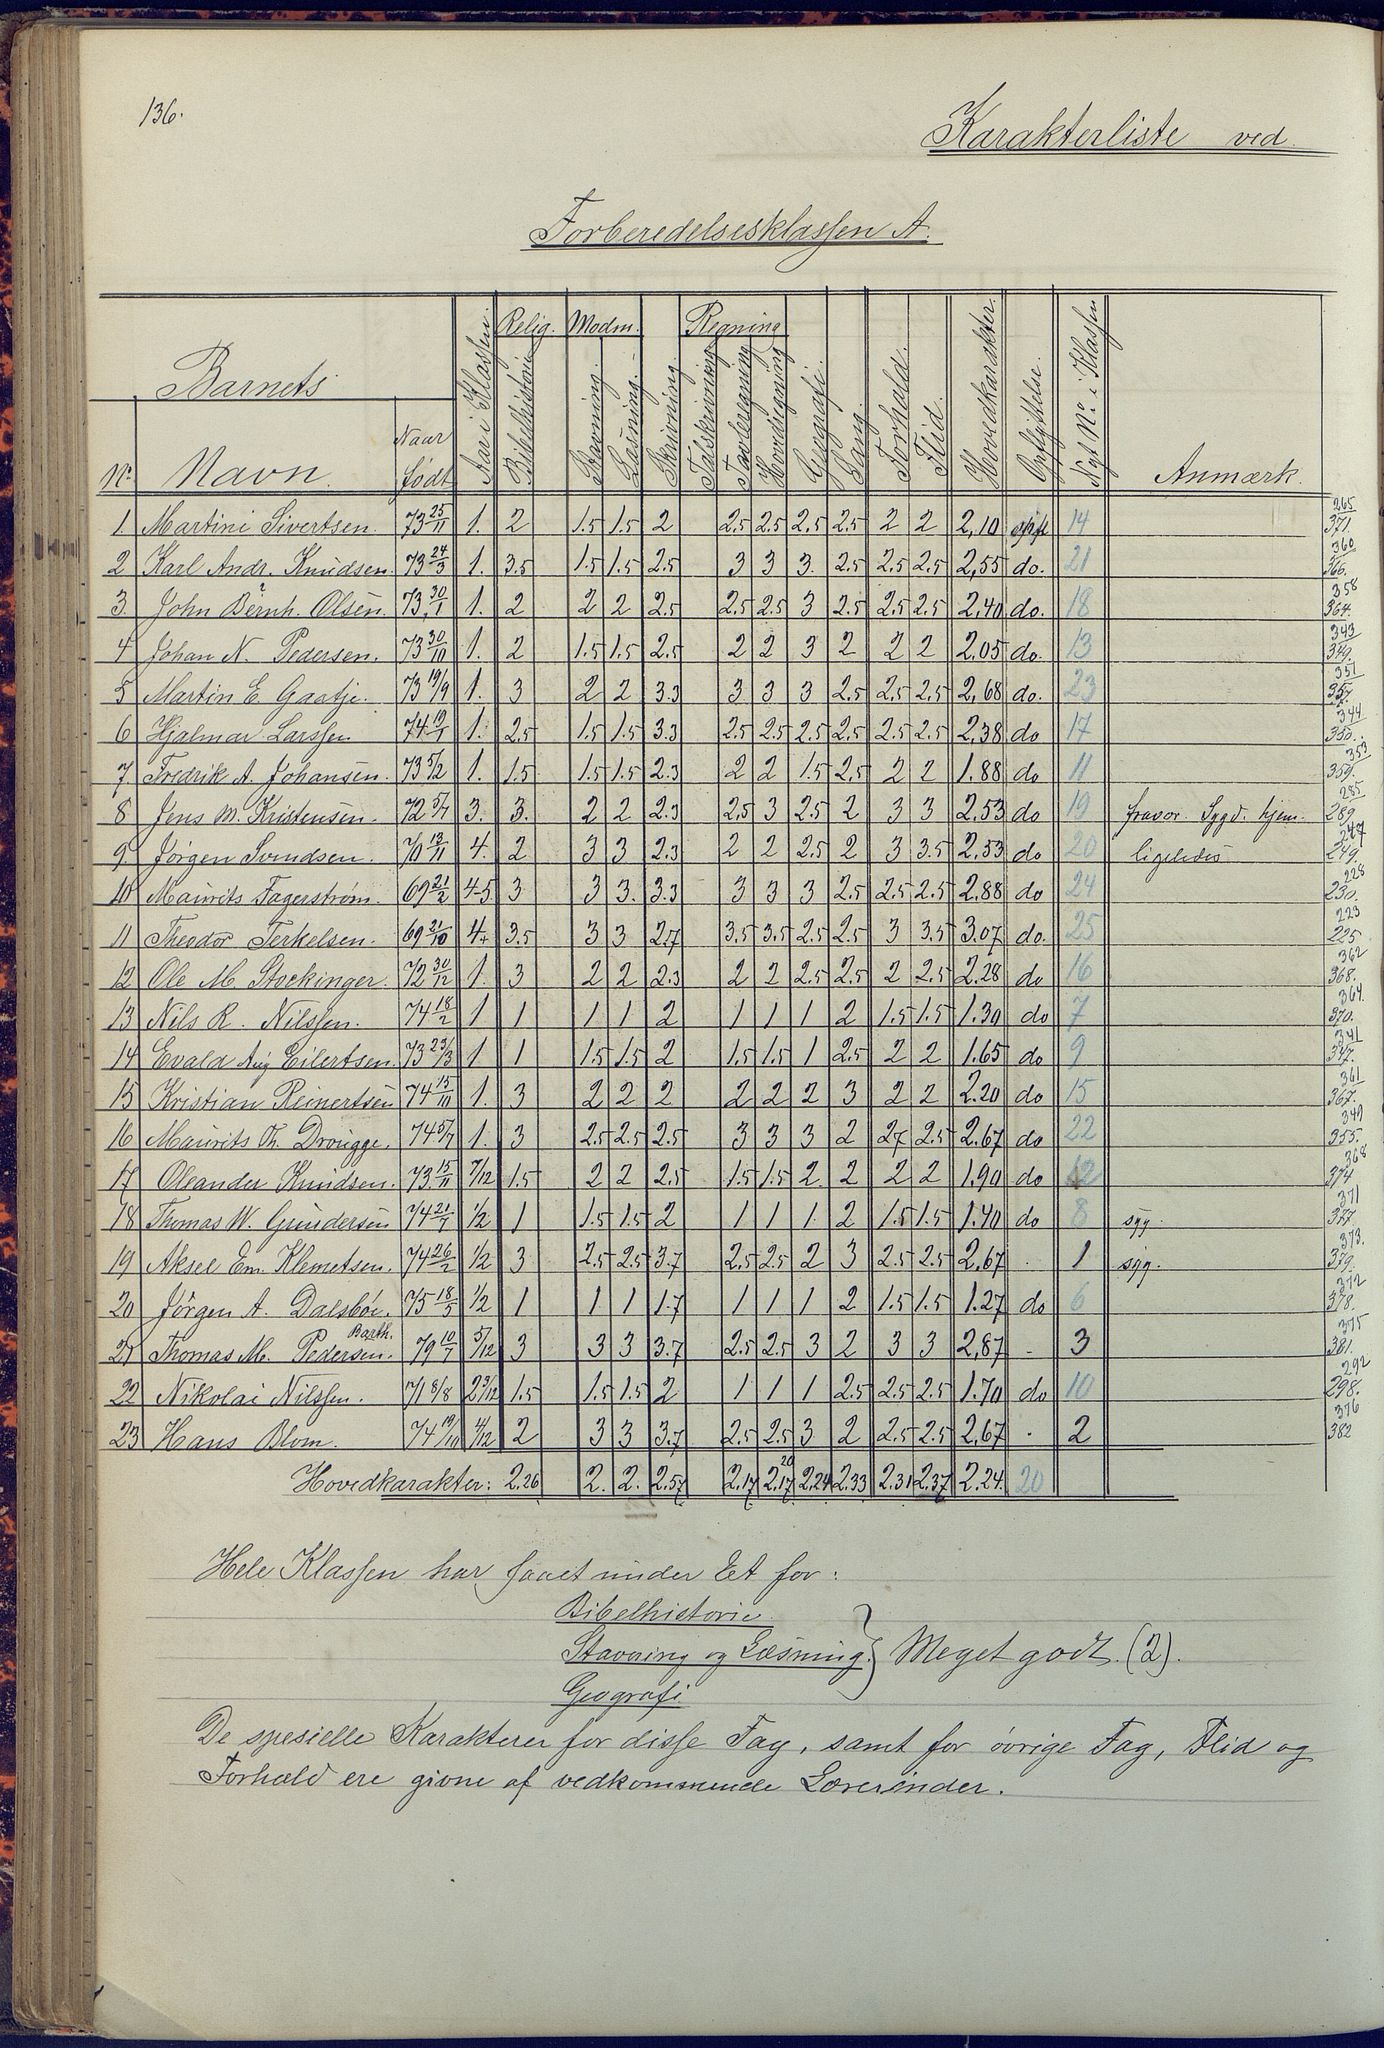 136.
Karakterliste ved
Forberedelsesklassen A.
Barnets
Relig. Modm. Regning
No. Navn. Naar født Aar i Klassen. Bibelhistorie Stavning. Læsning. Skrivning. Talskrivning Tavleregning Hovedregning Geografi. Sang. Forhold. Flid. Hovedkarakter. Opflyttelse. Nyt No. i Klassen Anmærk.
1 Martini Sivertsen. 73 25/11 1. 2 1.5 1.5 2 2.5 2.5 2.5 2.5 2 2 2,10 opfl 14 265 371
2 Karl Andr. Knudsen. 73 24/3 1. 3.5 1.5 1.5 2.5 3 3 3. 2.5 2.5 2.5 2,55 do. 21 360 366.
3. John Bernh. Olsen. 73 30/1 1. 2 2 2 2.5 2.5 2.5 3 2.5 2.5 2.5 2,40 do. 18 358 364.
4 Johan N. Pedersen. 73 30/10 1. 2 1.5 1.5 2.5 2 2 3 2 2 2 2,05 do. 13 343 349.
5 Martin E. Gaatje. 73 19/9 1. 3 2 2 3.3 3 3 3 2.5 2.5 2.5 2,68 do. 23 351 357.
6 Hjalmar Larssen 74 19/1 1. 2.5 1.5 1.5 3.3 2.5 2.5 2.5 2.5 2.5 2.5 2,38 do 17 344 350.
7 Fredrik A. Johansen. 73 5/2 1. 1.5 1.5 1.5 2.3 2 2 1.5 2.5 2 2 1.88 do 11 353 359.
8 Jens M. Kristensen. 72 5/7 3. 3. 2 2 2.3 2,5 3 2.5 2 3 3 2.53 do 19 fravær Sygd. hjem. 285 289
9 Jørgen Svendsen. 70 13/11 4. 2 3 3 2.3 2 2 2.5 2 3 3.5 2.53 do 20 ligeledes 247 249.
10 Maurits Fagerstrøm. 69 21/2 4-5. 3 3 3. 3.3 3 3 3 2.5 2.5 2.5 2,88 do 24 228 230.
11 Theodor Terkelsen. 69 31/10 4+ 3.5 3 3 2.7 3.5 3.5 2.5 2.5 3 3.5 3.07 do. 25 223 225.
12 Ole M. Stockinger. 72 30/12 1. 3 2 2 2.3 2 2 2.5 2.5 2 2.5 2.28 do 16 362 368.
13 Nils R. Nilssen. 74 18/2 1 1 1 1 2 1 1 1 2 1.5 1.5 1.30 do 7 364. 370.
14 Evald Aug Eilertsen. 73 23/3 1 1 1.5 1.5 2 1.5 1.5 1 2.5 2 2 1.65 do 9 341 347.
15 Kristian Reinertsen 74 15/10 1. 3 2 2 2 2 2 2 3 2 2 2.20 do 15 361 367.
16 Maurits Th. Drougge. 74 5/7 1. 3 2.5 2.5 2.5 3 3 3 2 2.7 2.5 2.67 do 22 349 355.
17 Oleander Knudsen. 73 15/11 7/12 1.5 2 2 2.5 1.5 1.5 2 2 2 2 1.90 do 12 368 374
18 Thomas W. Gundersen 74 21/7 1/2 1 1.5 1.5 2 1 1 1. 2 1.5 1.5 1.40 do 8 syg. 371 377.
19 Aksel Em. Klemetsen. 74 26/2 1/2 3 2.5 2.5 3.7 2,5 2.5 2 3 2.5 2.5 2,67 . 1 syg. 373. 379.
20 Jørgen A. Dalsbøe. 75 18/5 1/2 1 1 1 1.7 1 1 1 2 1.5 1.5 1.27 do 6 372 378.
21 Thomas M. Barth. Pedersen. 79 10/7 5/12 3 3 3 3.7 2.5 2.5 3 2 3 3 2,87 . 3 375 381.
22 Nikolai Nilssen. 71 8/8 2 3/12 1.5 1.5 1.5 2 1 1 1 2.5 2.5 2.5 1.70 do 10 292 298.
23 Hans Blom. 74 19/10 4/12 2 3 3 3.7 2.5 2.5 3 2 2.5 2.5 2,67 . 2 376 382
Hovedkarakter: 2.26 2. 2. 2.57 2.17 2.17 20 2.24 2.33 2.31 2.37 2.24. 20
Hele Klassen har faaet under Et for:
Bibelhistorie.
Stavning og Læsning. } Meget godt. (2).
Geografi
De spesielle Karakterer for disse Fag, samt for øvrige Fag, Flid og
Forhold ere givne af vedkommende Lærerinder.